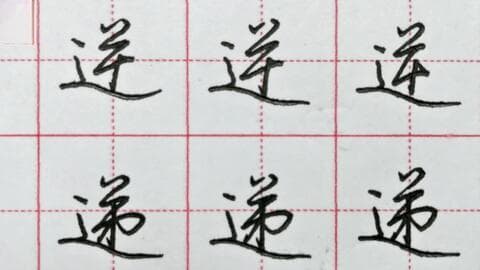 逆 逆 逆
递 递 递